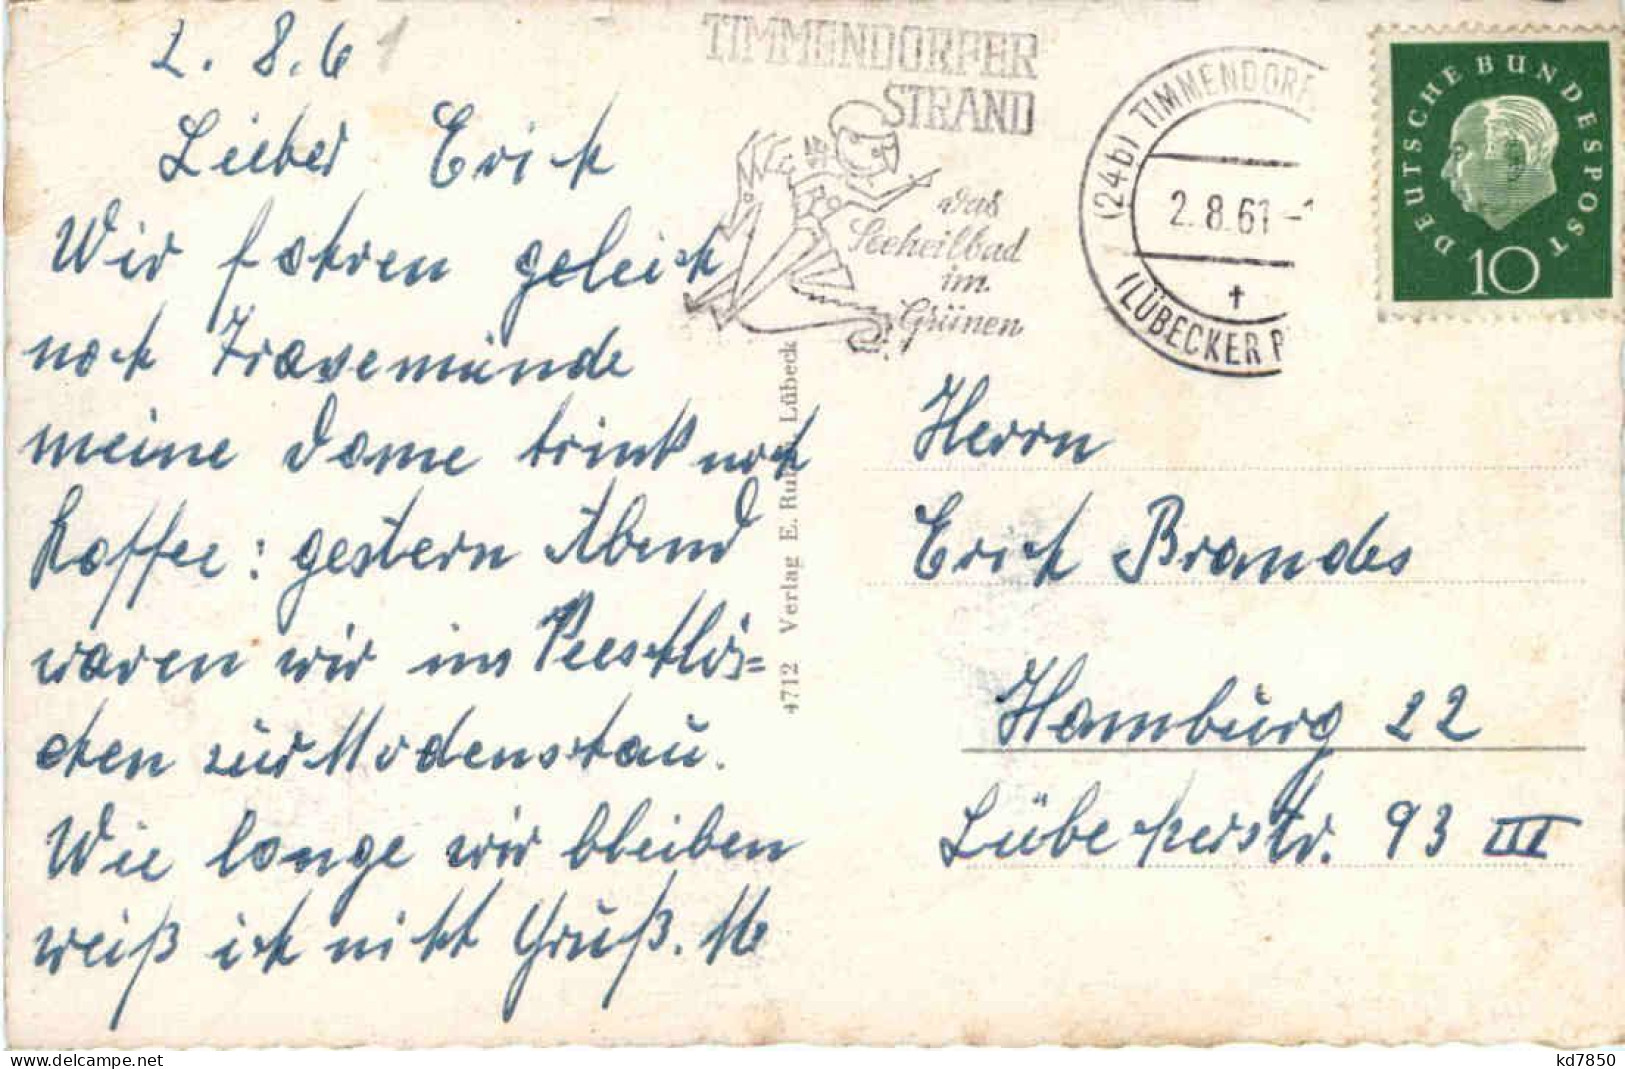 2.8.61
Lieber Erich
Wir fahren geleich
noch Travemünde
meine Dame trinkt noch
Kaffee: gestern Abend
waren wir im
chen zur Modenschau.
Wie lange wir bleiben
weiß ich nicht Gruß.
TIMMENDORFER
STRAND
das
Seeheilbad
im
Grünen
(24b) TIMMENDORF
2.8.61-1
(LÜBECKER
DEUTSCHE BUNDESPOST
10
4712 Verlag E. Lübeck
Herrn
Erich Brandes
Hamburg 22
Lübeckerstr. 93 III
kd7850
delcampe.net